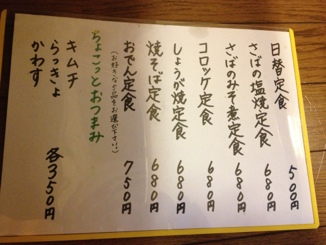 日替定食 500円
さばの塩焼定食 680円
さばのみそ煮定食 680円
コロッケ定食 680円
しょうが焼定食 680円
焼そば定食 680円
おでん定食 750円
(お好きな4品をお選び下さい。)
ちょこっとおつまみ
キムチ
らっきょ
かわす 各350円